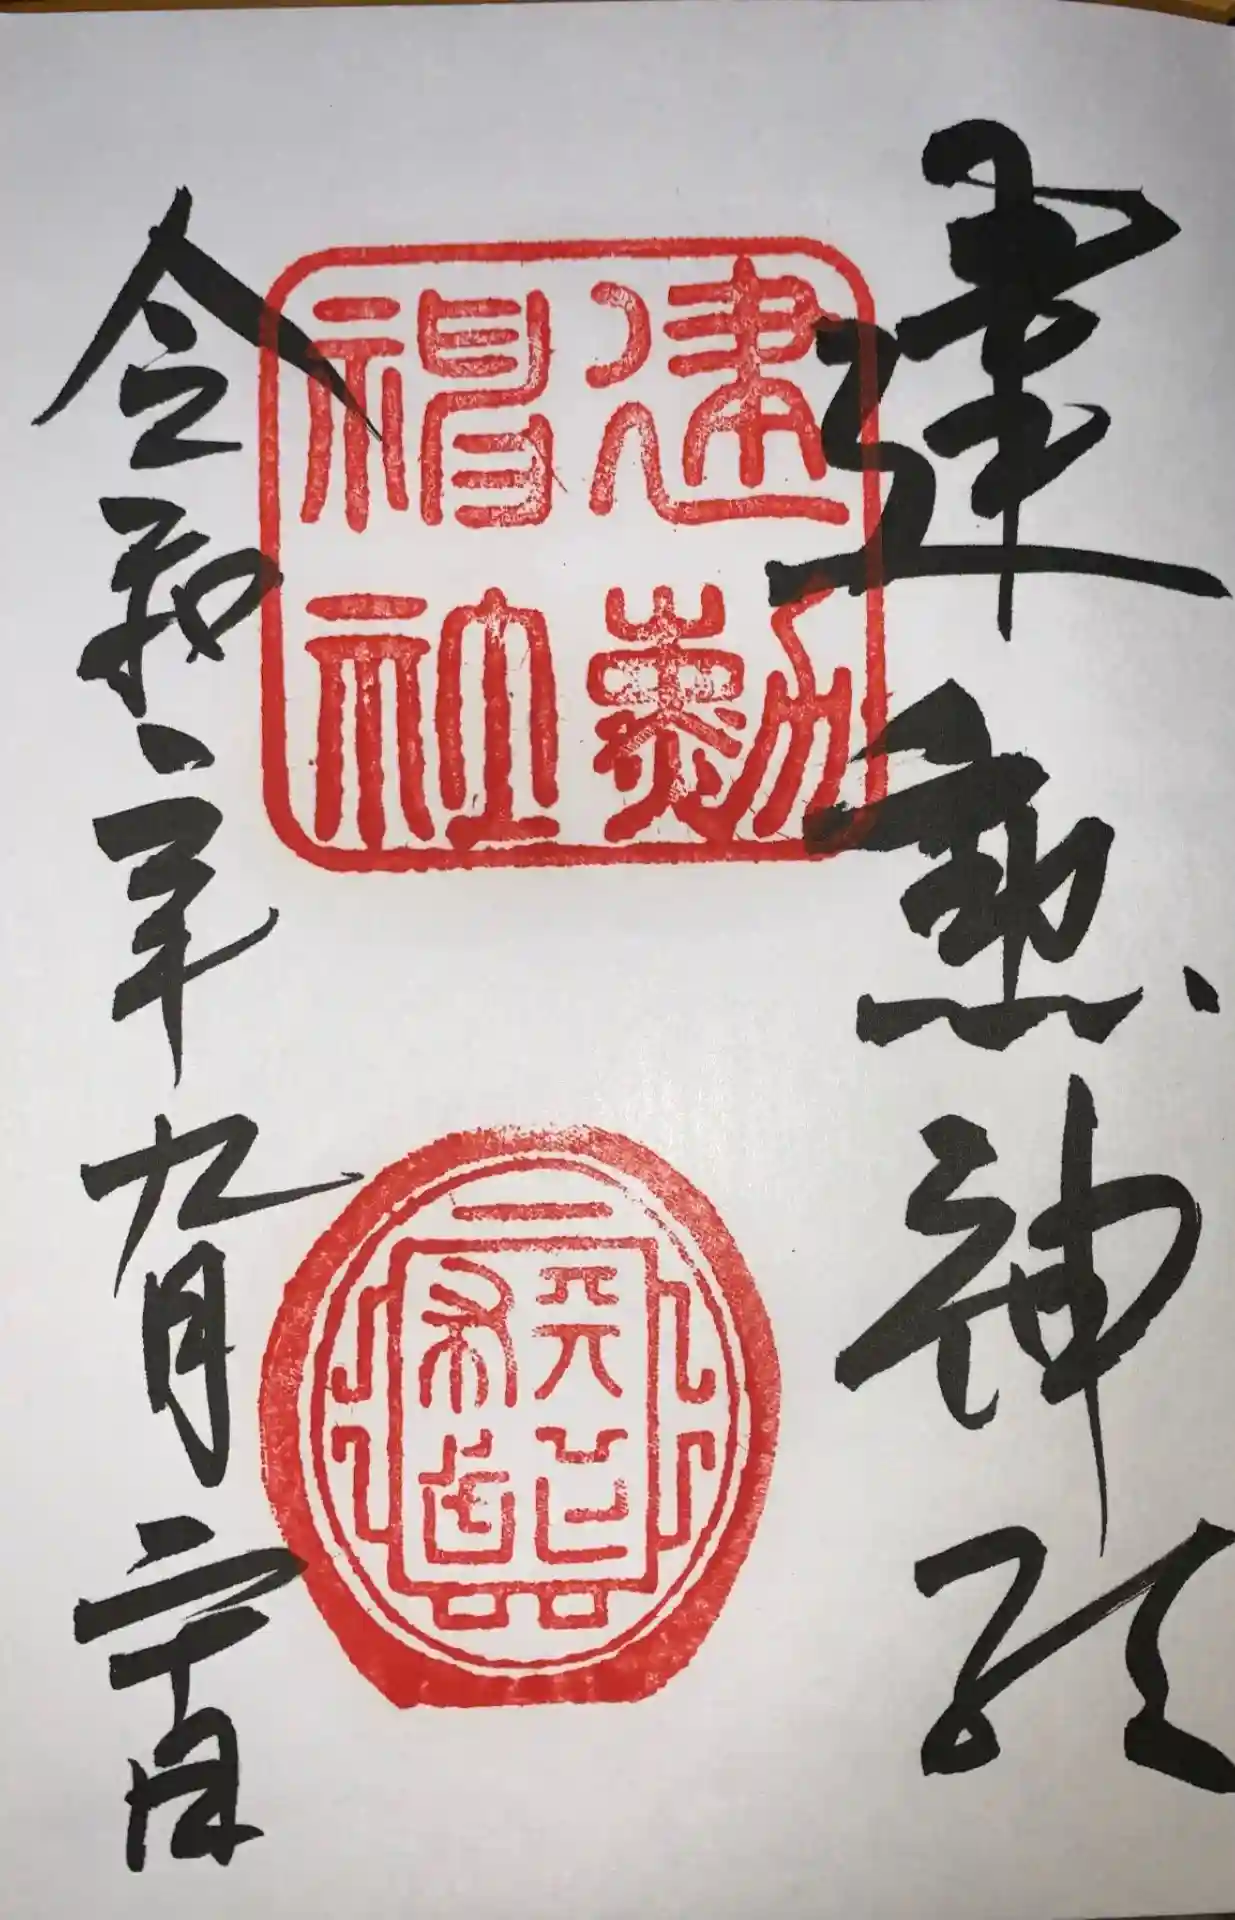 建勲神社
建勲
神社
天下
布武
令和二年九月二十日